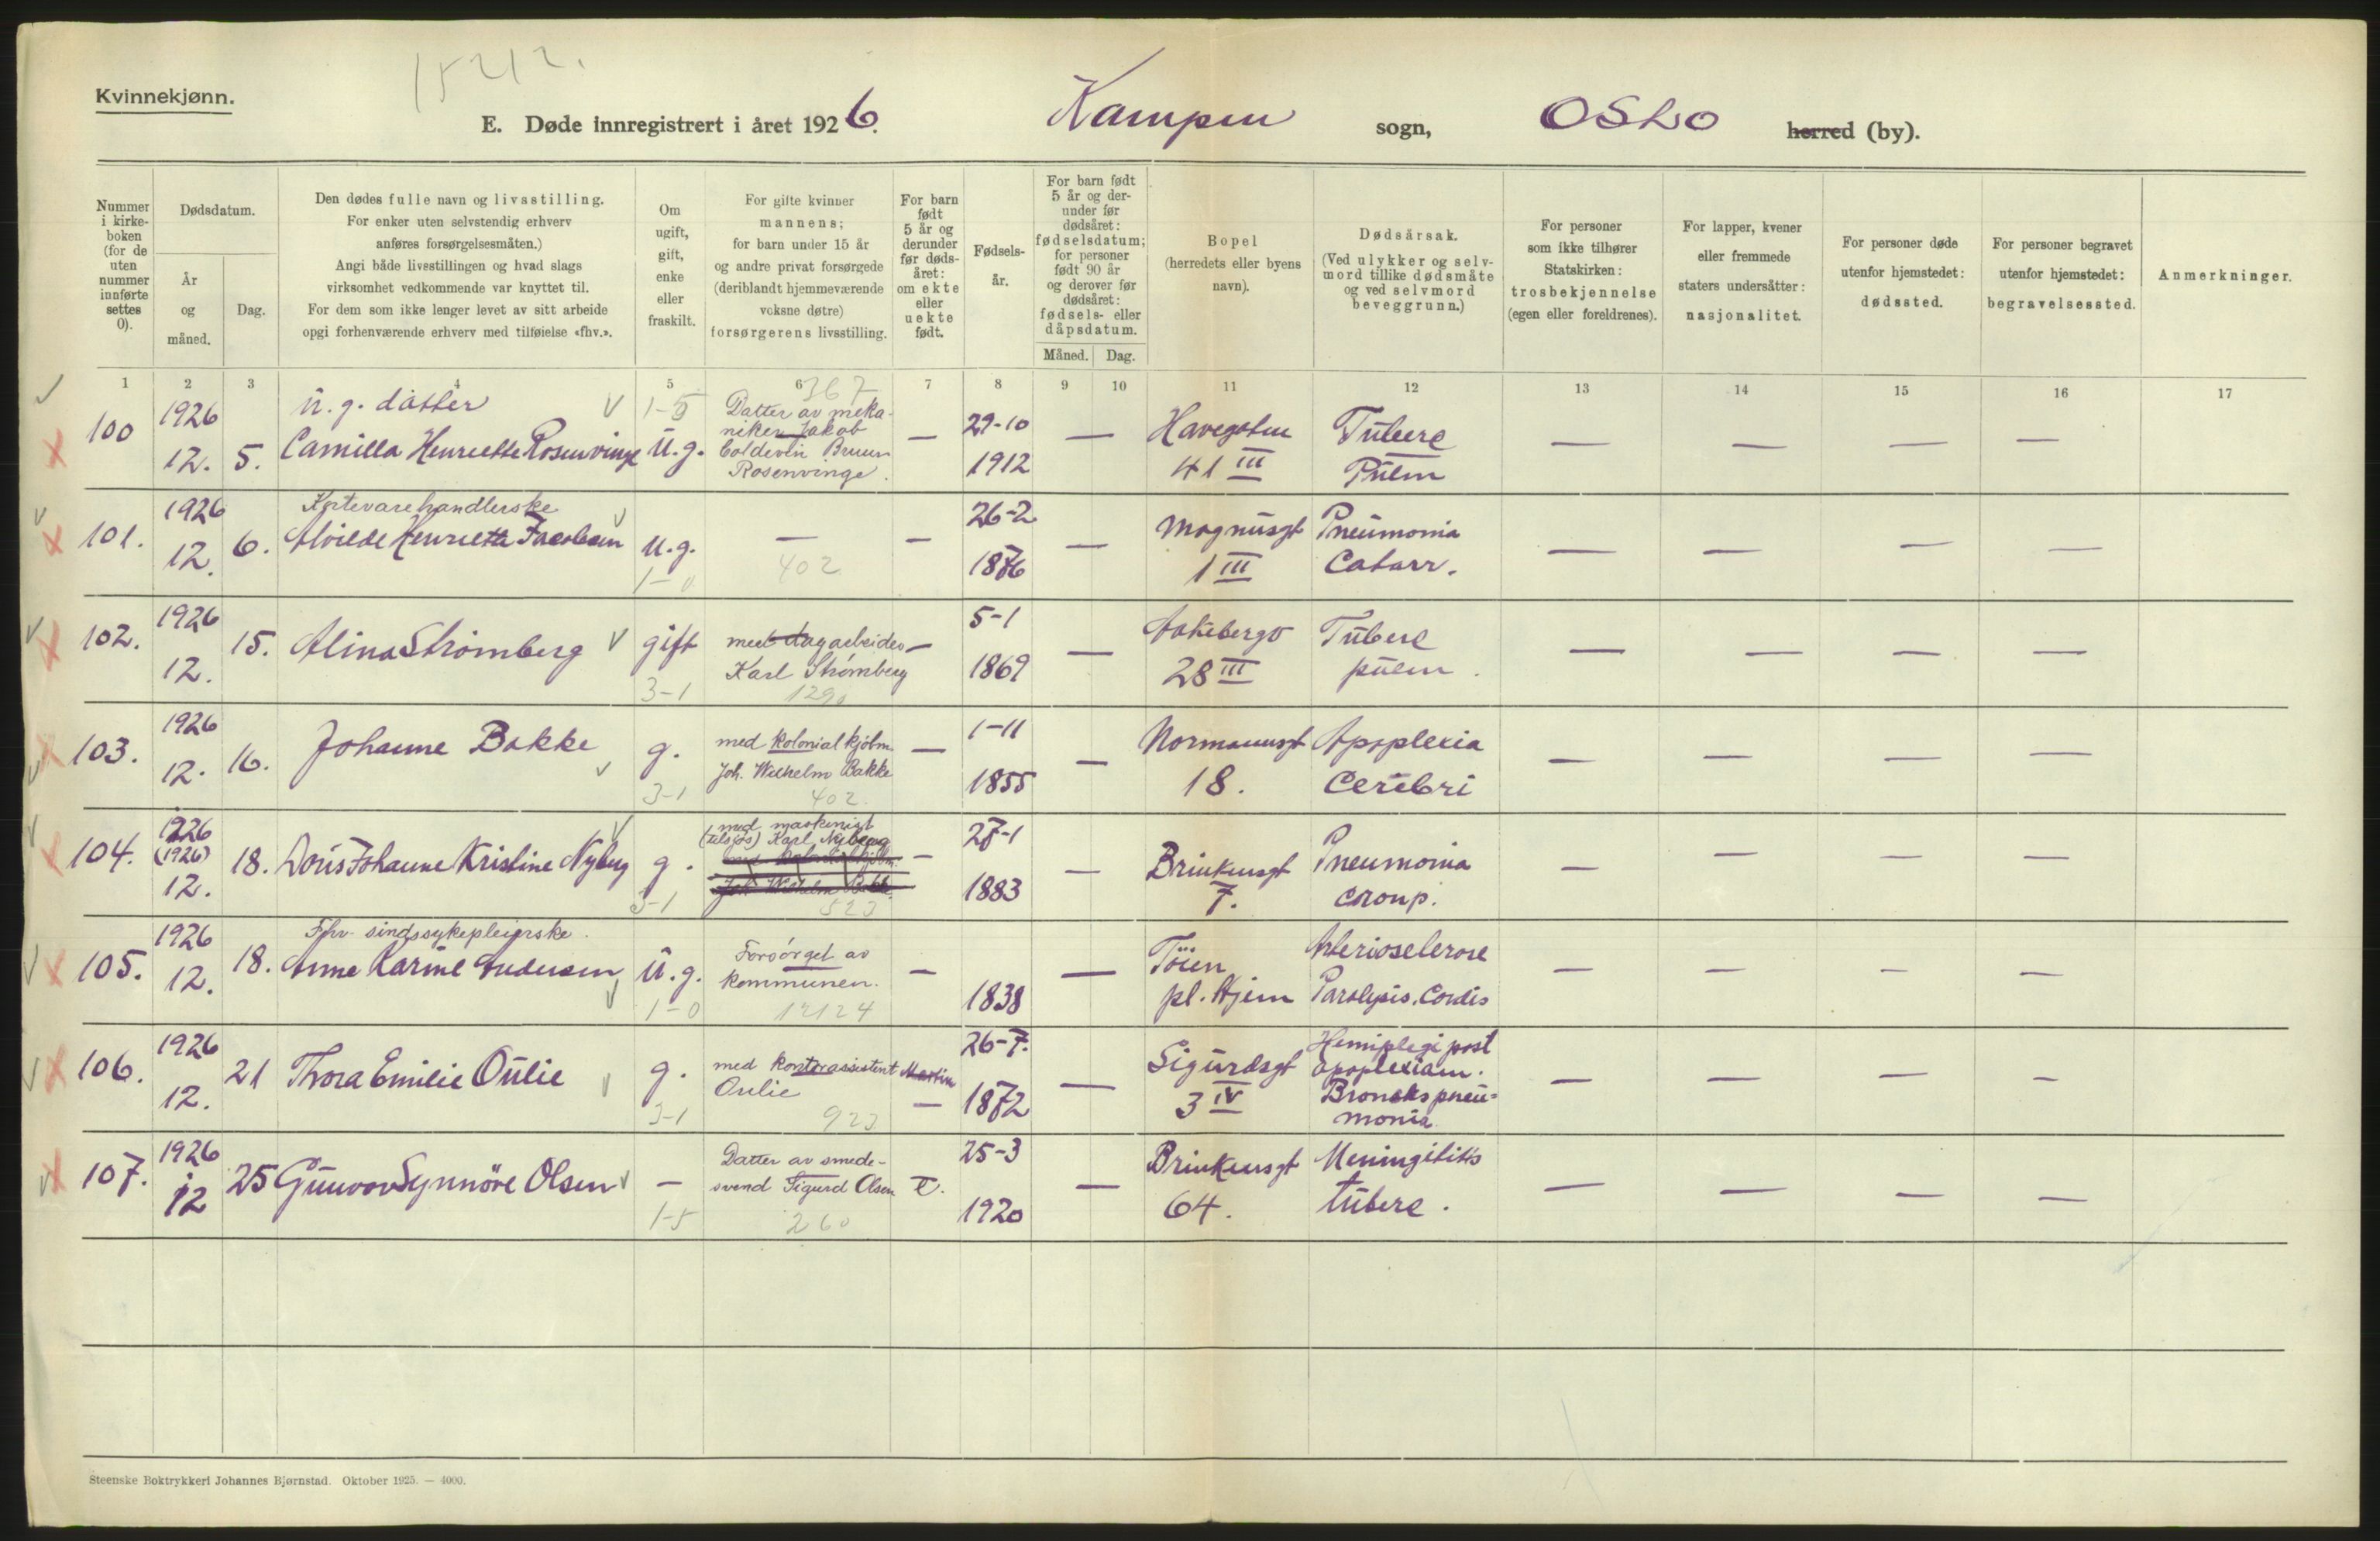 15212.
Kvinnekjønn.
E. Døde innregistrert i året 1926. Kampen sogn, OSLO herred (by).
Nummer i kirke-boken (for de uten nummer innførte settes 0).
Dødsdatum.
År og måned.
Dag.
Den dødes fulle navn og livsstilling.
For enker uten selvstendig erhverv
anføres forsørgelsesmåten.)
Angi både livsstillingen og hvad slags
virksomhet vedkommende var knyttet til.
For dem som ikke lenger levet av sitt arbeide
opgi forhenværende erhverv med tilføielse «fhv.».
Om ugift, gift, enke eller fraskilt.
For gifte kvinner
mannens;
for barn under 15 år
og andre privat forsørgede
(deriblandt hjemmeværende
voksne døtre)
forsørgerens livsstilling.
For barn født 5 år og derunder før døds-året: om ekte eller uekte født.
Fødsels-år.
For barn født
5 år og der-
under før
dødsåret:
fødselsdatum;
for personer
født 90 år
og derover før
dødsåret:
fødsels- eller
dåpsdatum.
Måned. Dag.
Bopel
(herredets eller byens
navn).
Dødsårsak.
(Ved ulykker og selv-
mord tillike dødsmåte
og ved selvmord
beveggrunn.)
For personer
som ikke tilhører
Statskirken:
trosbekjennelse
(egen eller foreldrenes).
For lapper, kvener
eller fremmede
staters undersåtter:
nasjonalitet.
For personer døde
utenfor hjemstedet:
dødssted.
For personer begravet
utenfor hjemstedet:
begravelsessted.
Anmerkninger.
1 2 3 4 5 6 7 8 9 10 11 12 13 14 15 16 17
100 1926 12. 5.
u.g. datter
Camilla Henriette Rosenvinge
1-5
U.g.
367
Datter av meka-
niker Jakob
Coldevin Bruun
Rosenvinge.
—
29-10
1912
—
Havegaten
41 III
Tuberc
Pulm
— — — —
101. 1926 12. 6.
Kortevarehandlerske
Alvilde Henriette Jacobsen
u.g.
1-0
—
402
—
26-2
1876
—
Magnusgt
1 III
Pneumonia
Catarr.
— — — —
102. 1926 12. 15.
Alina Strømberg
gift
3-1
med dagarbeider
Karl Strømberg
1290
—
5-1
1869
—
Aakebergv
28 III
Tuberc
pulm.
— — — —
103. 1926 12. 16.
Johanne Bakke
g.
3-1
med kolonialkjøbm.
Joh. Wilhelm Bakke
402.
—
1-11
1855
—
Normannsgt
18.
Apoplexia
Cerebri
— — — —
104. 1926 (1926) 12. 18.
Doris Johanne Kristine Nyberg
g.
3-1
med maskinist
(tilsjøs) Karl Nyberg
med kolonialkjøbm.
Joh. Wilhelm Bakke.
523
—
27-1
1883
—
Brinkensgt
7.
Pneumonia
croup.
— — — —
105. 1926 12. 18.
Fhv. sindssykepleierske.
Anne Karine Andersen
U.g.
1-0
Forsørget av
kommunen.
12124
—
1838
—
Töien
pl. Hjem
Arteriosclerose
Paralysis. Cordis
— — — —
106. 1926 12. 21
Thora Emilie Oulie
g.
3-1
med kontorassistent Martin
Oulie
923
—
26-7.
1872
—
Sigurdsgt
3 IV
Hemiplegi post
apoplexiam.
Broncks pneu=
monia
— — — —
107. 1926 12 25
Gunvor Synnöve Olsen
—
1-5
Datter av smede-
svend Sigurd Olsen
260
E.
25-3
1920
—
Brinkensgt
64.
Meningitis
tuberc.
— — — —
Steenske Boktrykkeri Johannes Bjørnstad. Oktober 1925. — 4000.